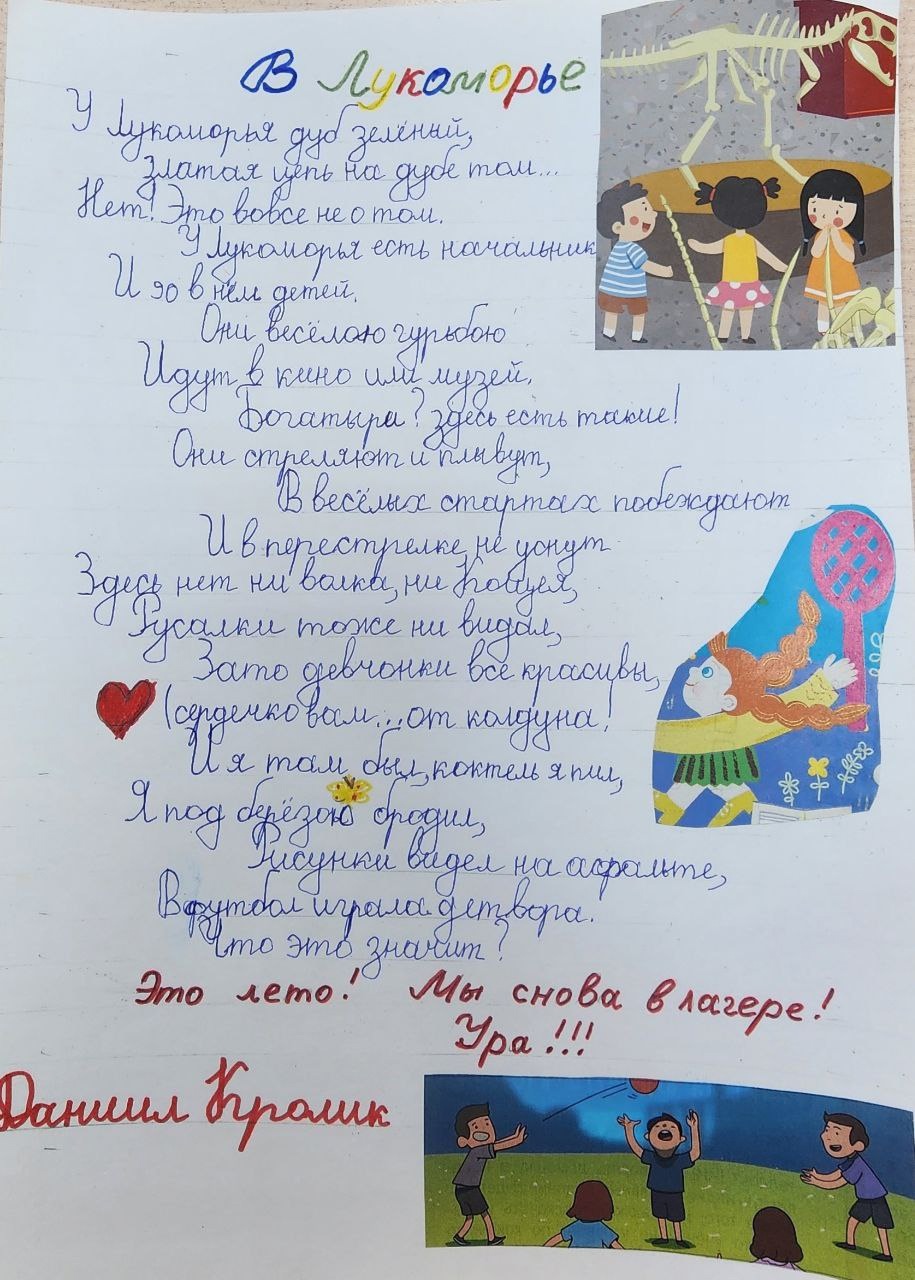 В Лукоморье
У Лукоморья дуб зелёный,
Златая цепь на дубе том...
Нет! Это вовсе не о том.
У Лукоморья есть начальник
И 90 в нём детей.
Они весёлою гурьбою
Идут в кино или музей.
Богатыри? здесь есть такие!
Они стреляют и плывут,
В весёлых стартах побеждают
И в перестрелке не уснут
Здесь нет ни волка, ни Кощея,
Русалки тоже ни видал,
Зато девчонки все красивы,
(сердечко вам...от колдуна!
И я там был, коктель я пил,
Я под берёзою бродил,
Рисунки видел на асфальте,
В футбол играла детвора.
Что это значит?
Это лето! Мы снова в лагере!
Ура!!!
Даниил Кролик